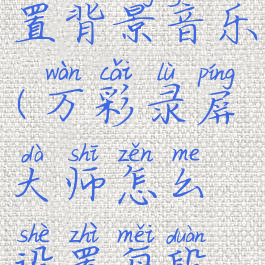 置背景音乐
wàn cǎi lù píng
(万彩录屏
dà shī zěn me
大师怎么
shè zhì měi duàn
设置每段